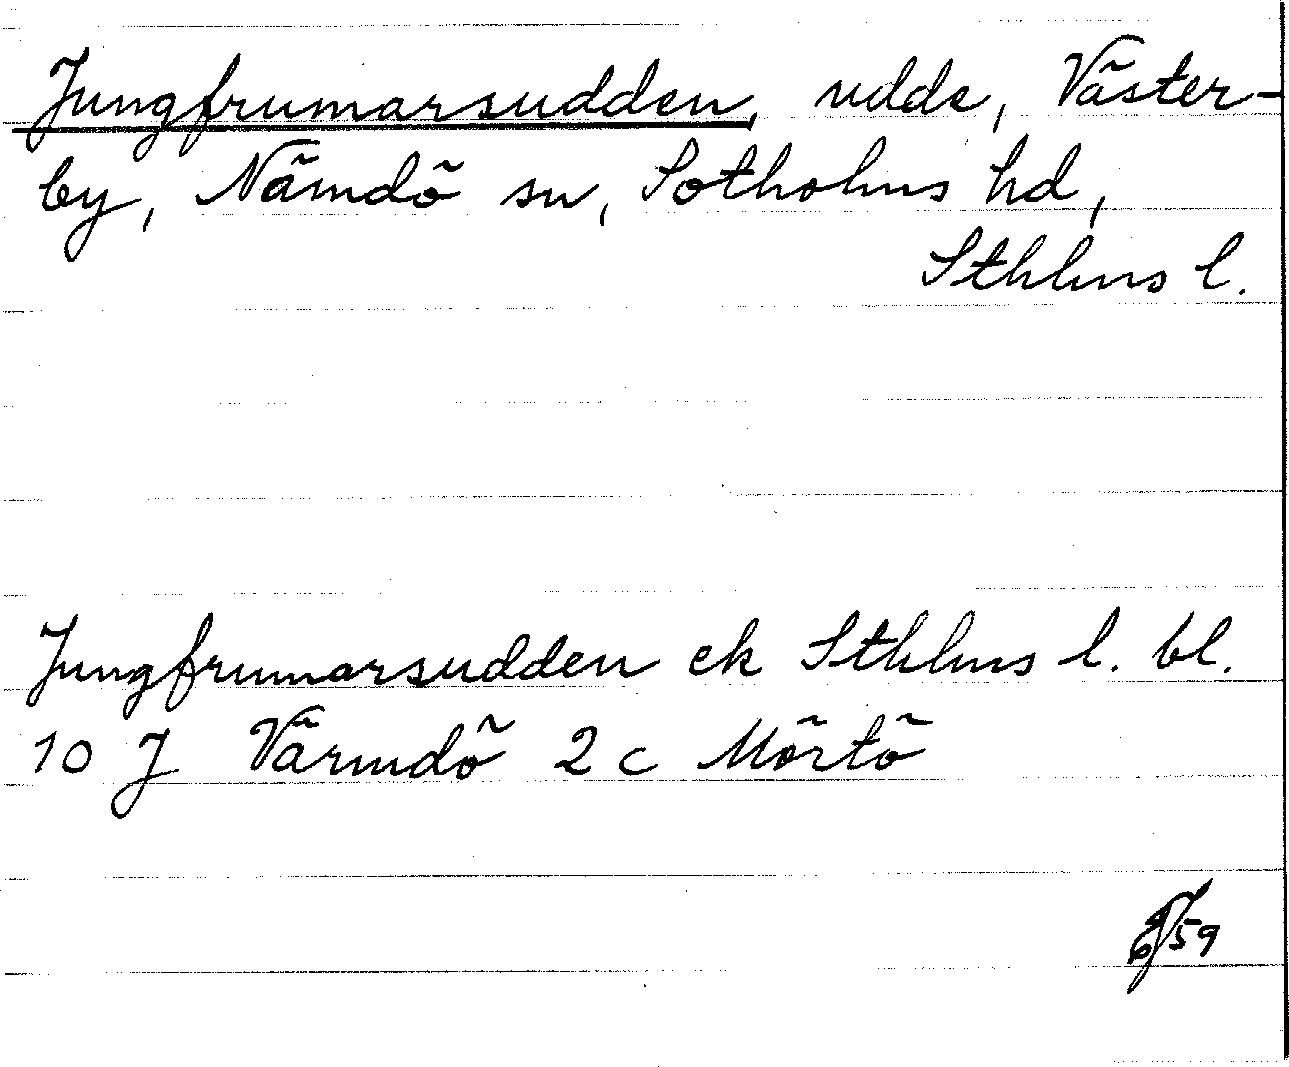 Jungfrumarsudden, udde, Väster-
by, Nämdö sn, Sotholms hd,
Sthlms l.
Jungfrumarsudden ek Sthlms l. bl.
10 J Värmdö 2 c Mörtö
59